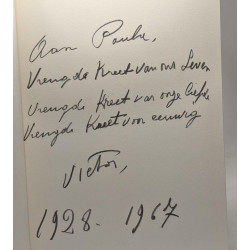 Aan Paula,
Vreugde Kreet van ons Leven
Vreugde Kreet van onze liefde
Vreugde Kreet voor eeuwig
Victor,
1928. 1967